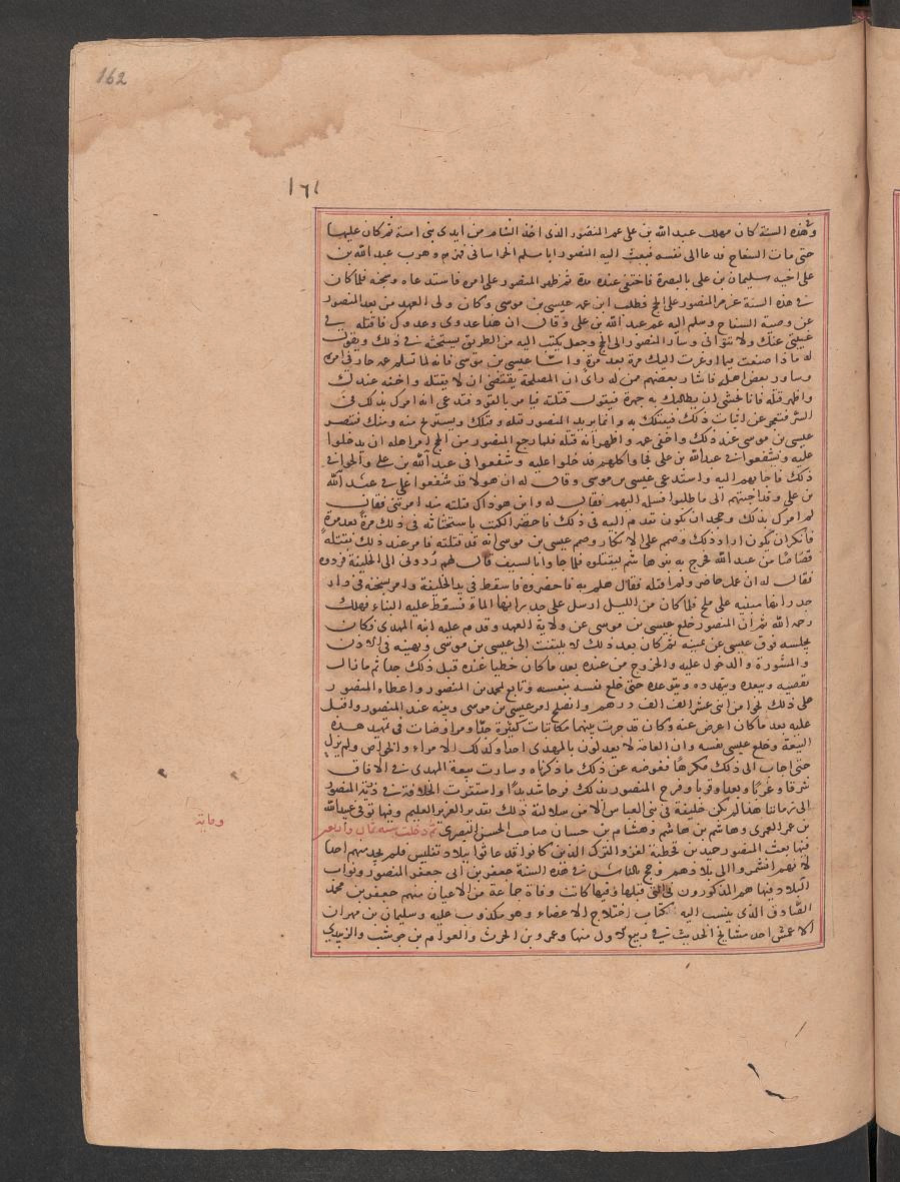 162
١٦١
وفي هذه السنة كان مهلك عبد الله بن علي عم المنصور الذى اخذ الشام من ايدى بنى امية ثم كان عليها
حتى مات السفاح فدعا الى نفسه فبعث اليه المنصور ابا مسلم الخراسانى فهزمه وهرب عبد الله بن
على اخيه سليمان بن على بالبصرة فاختفى عنده مدة ثم ظهر المنصور على امره فاستدعاه وسجنه فلما كان
فى هذه السنة عزم المنصور على الحج فطلب ابن عمه عيسى بن موسى وكان ولى العهد من بعد المنصور
عن وصية السفاح وسلم اليه عمه عبد الله بن على وقال ان هذا عدوى وعدوك فاقتله فى
غيبتى عنك ولا تتوانى وسار المنصور الى الحج وجعل يكتب اليه من الطريق يستحثه فى ذلك ويقول
له ماذا صنعت فيما اوعزت اليك مرة بعد مرة واما عيسى بن موسى فانه لما تسلم عمه حار فى امره
وساور بعض اهله فاشار بعضهم من له راى ان المصلحة يقتضى ان لا يقتله واخفه عندك
واظهر قتله فانا نخشى ان يطالبك به جهرة فيقول قتلته فيامر بالقود فتدعى انه امرك بذلك فى
السر فتعجز عن اثبات ذلك فيقتلك به وانما يريد المنصور قتله وقتلك ويستريح منه ومنك فتصر
عيسى بن موسى عند ذلك واخفى عمه واظهر انه قتله فلما رجع المنصور من الحج امر اهله ان يدخلوا
عليه ويشفعوا فى عبد الله بن على فجاوا كلهم فدخلوا عليه وشفعوا فى عبد الله بن على والحوا فى
ذلك فاجابهم اليه واستدعى عيسى بن موسى وقال له ان هولا قد شفعوا على فى عبد الله
بن على وقد اجبتهم الى ما طلبوا فسلمه اليهم فقال له واين هو ذاك قتلته منذ امرتنى فقال
لم امرك بذلك وجحد ان يكون تقدم اليه فى ذلك فاحضر الكتب باستحثاثه فى ذلك مرة بعد مرة
فانكر ان يكون اراد ذلك وصمم على الانكار وصمم عيسى بن موسى انه قد قتلته فامر عند ذلك بقتله
قصاصا من عبد الله فخرج به بنو هاشم ليقتلوه فلما جاوا بالسيف قال لهم ردونى الى الخليفة فردوه
فقال له ان عمك حاضر ولم اقتله فقال هلم به فاحضروه فاسقط فى يد الخليفة وامر بسجنه فى دار
جدرانها مبنية على ملح فلما كان من الليل ارسل على جدرانها الماء فسقط عليه البناء فهلك
رحمه الله ثم ان المنصور خلع عيسى بن موسى عن ولاية العهد وقدم عليه ابنه المهدى فكان
يجلسه فوق عيسى عن يمينه ثم كان بعد ذلك لا يلتفت الى عيسى بن موسى ويهينه فى الاذن
والمشورة والدخول عليه والخروج من عنده بعد ما كان خطيا عنده قبل ذلك جدا ثم ما زال
يقصيه ويبعده ويتهدده ويتوعده حتى خلع نفسه بنفسه وتابع لمحمد بن المنصور واعطاه المنصور
على ذلك نحوا من اثنى عشر الف الف درهم وانصلح امر عيسى بن موسى وبنيه عند المنصور واقبل
عليه بعد ما كان اعرض عنه وكان قد جرت بينهما مكاتبات كثيرة جدا ومراوضات فى تمهيد هذه
البيعة وخلع عيسى نفسه وان العامة لا يعدلون بالمهدى احدا وكذلك الامراء والخواص ولم يزل
حتى اجاب الى ذلك مكرها فعوضه عن ذلك ما ذكرناه وسارت بيعة المهدى فى الافاق
شرقا وغربا وبعدا وقربا وفرح المنصور بذلك فرحا شديدا واستقرت الخلافة فى ذرية المنصور
الى زماننا هذا لم يكن خليفة فى بنى العباس الا من سلالته ذلك تقدير العزيز العليم وفيها توفى عبيد الله
بن عمر العمرى وهاشم بن هاشم وهشام بن حسان صاحب الحسن البصرى ثم دخلت سنة ثمان واربعين
وماية
فيها بعث المنصور حميد بن قحطبة لغزو الترك الذين كانوا قد عاثوا ببلاد تفليس فلم يجد منهم احدا
لانهم انشمروا الى بلادهم وحج بالناس فى هذه السنة جعفر بن ابى جعفر المنصور ونواب
البلاد فيها هم المذكورون فى التى قبلها وفيها كانت وفاة جماعة من الاعيان منهم جعفر بن محمد
الصادق الذى ينسب اليه كتاب اختلاج الاعضاء وهو مكذوب عليه وسليمان بن مهران
الاعمش احد مشايخ الحديث فى ربيع الاول منها وعمرو بن الحرث والعوام بن حوشب والزبيدى